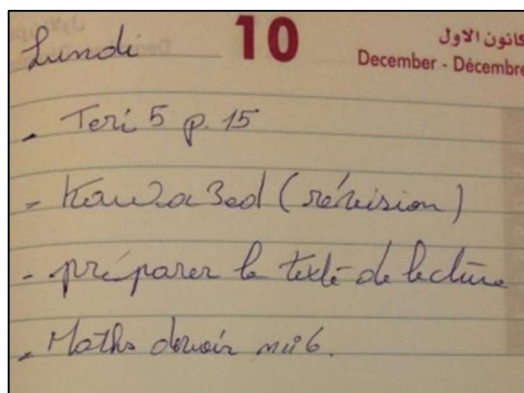 Lundi 10 كانون الاول
December - Décembre
. Teri 5 p. 15
- Kawa3ed (révision)
- préparer le texte de lecture
. Maths devoir nº 6.